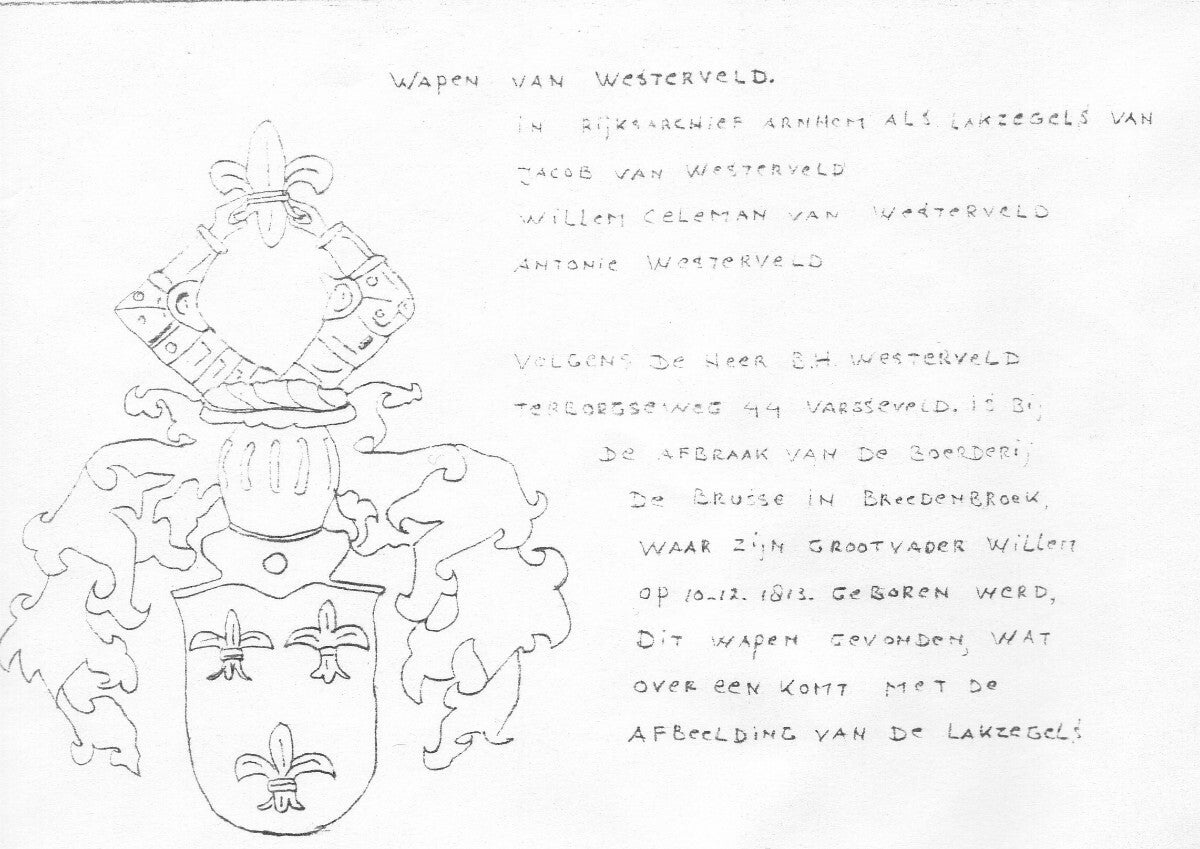 Wapen van Westerveld.
in Rijksarchief Arnhem als lakzegels van
Jacob van Westerveld
Willem Celeman van Westerveld
Antonie Westerveld
Volgens de Heer B.H. Westerveld
Terborgseweg 44 Varsseveld. is bij
de afbraak van de boerderij
de Brusse in Breedenbroek,
waar zijn grootvader Willem
op 10-12. 1813. geboren werd,
dit wapen gevonden, wat
over een komt met de
afbeelding van de lakzegels